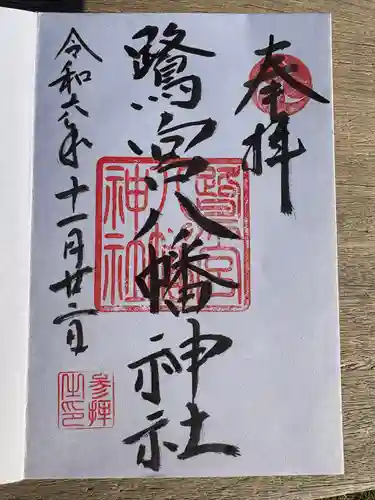 奉拝
鷺宮八幡神社
令和六年十一月廿二日
鷺宮八幡神社
参拝之印